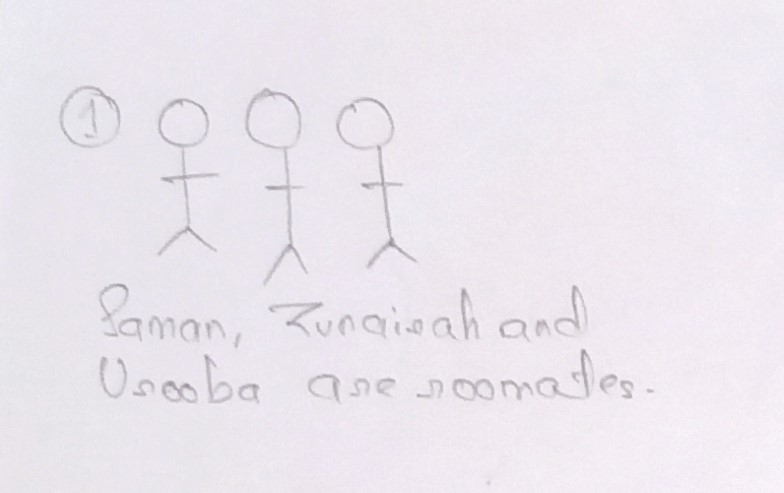 1
Saman, Zunairah and
Urooba are roomates.